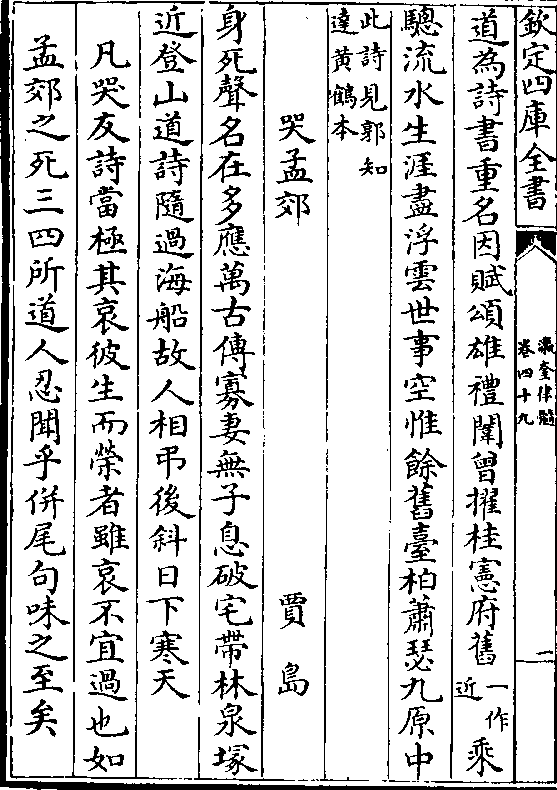 欽定四庫全書
瀛奎律髓
卷四十九
二
道為詩書重名因賦頌雄禮闈曾擢桂憲府舊
一作
近
乘
驄流水生涯盡浮雲世事空惟餘舊臺柏蕭瑟九原中
此詩見郭知
達黃鶴本
哭孟郊 賈島
身死聲名在多應萬古傳寡妻無子息破宅帶林泉塚
近登山道詩隨過海船故人相弔後斜日下寒天
凡哭友詩當極其哀彼生而榮者雖哀不宜過也如
孟郊之死三四所道人忍聞乎併尾句味之至矣